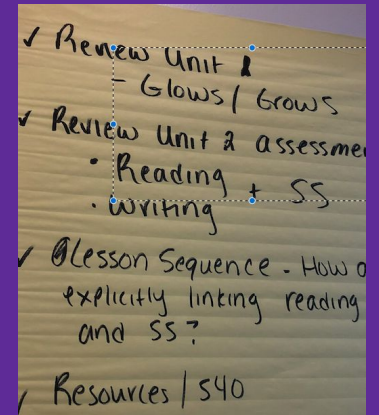 ✓ Renew Unit 1
- Glows / Grows
✓ Review Unit 2 assessme
• Reading + SS
• Writing
✓ Lesson Sequence - How
explicitly linking reading
and SS?
Resources / S40